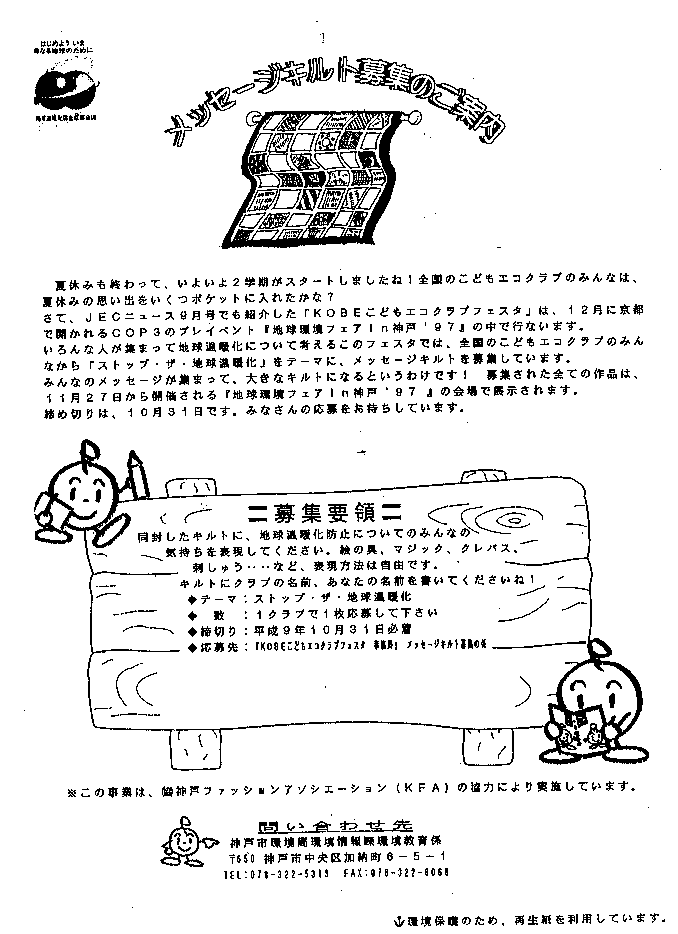 はじめよう いま
メッセージキルト募集のご案内
夏休みも終わって、いよいよ2学期がスタートしましたね！全国のこどもエコクラブのみんなは、
夏休みの思い出をいくつポケットに入れたかな？
さて、JECニュース9月号でも紹介した「KOBEこどもエコクラブフェスタ」は、12月に京都
で開かれるCOP3のプレイベント『地球環境フェアIn神戸'97』の中で行ないます。
いろんな人が集まって地球温暖化について考えるこのフェスタでは、全国のこどもエコクラブのみん
なから「ストップ・ザ・地球温暖化」をテーマに、メッセージキルトを募集しています。
みんなのメッセージが集まって、大きなキルトになるというわけです！ 募集された全ての作品は、
11月27日から開催される『地球環境フェアIn神戸'97』の会場で展示されます。
締め切りは、10月31日です。みなさんの応募をお待ちしています。
＝募集要領＝
同封したキルトに、地球温暖化防止についてのみんなの
気持ちを表現してください。絵の具、マジック、クレパス、
刺しゅう‥‥など、表現方法は自由です。
キルトにクラブの名前、あなたの名前を書いてくださいね！
◆テーマ：ストップ・ザ・地球温暖化
◆ 数 ：1クラブで1枚応募して下さい
◆締切り：平成9年10月31日必着
◆応募先：「KOBEこどもエコクラブフェスタ 事務局」 メッセージキルト募集の係
※この事業は、㈶神戸ファッションアソシエーション（KFA）の協力により実施しています。
問い合わせ先
神戸市環境局環境情報課環境教育係
〒650 神戸市中央区加納町6－5－1
TEL:078-322-5313 FAX:078-322-6068
環境保護のため、再生紙を利用しています。